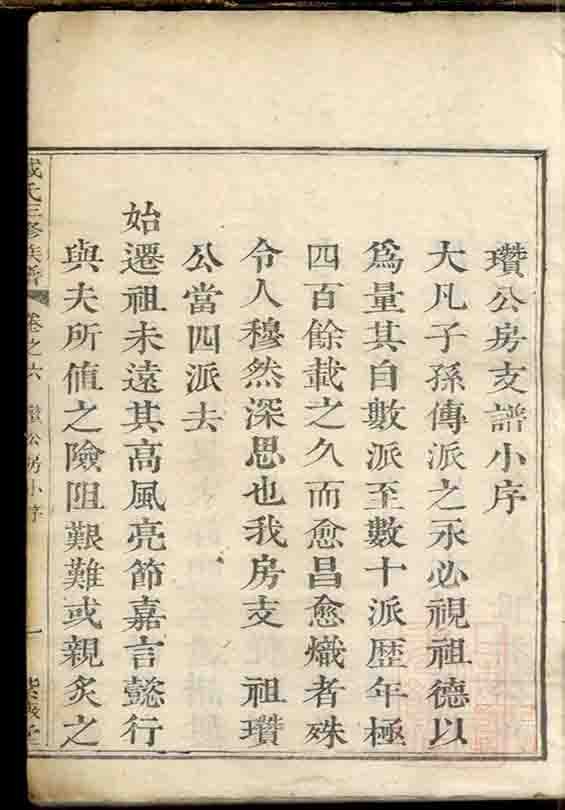 瓚公房支譜小序
大凡子孫傳派之永必視祖德以
為量其自數派至數十派歷年極
四百餘載之久而愈昌愈熾者殊
令人穆然深思也我房支　祖瓚
公當四派去
始遷祖未遠其高風亮節嘉言懿行
與夫所值之險阻艱難或親炙之
氏三修族譜　卷之六　瓚公房小序　一